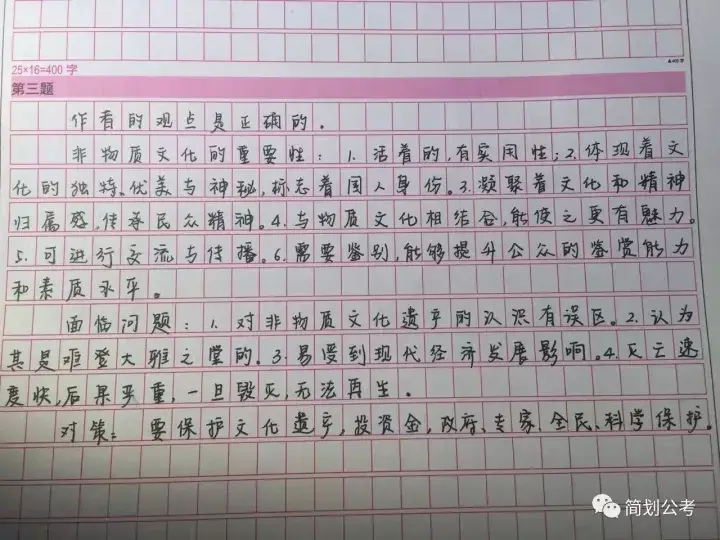 ▲400字
25×16=400 字
第三题
作者的观点是正确的。
非物质文化的重要性：1.活着的，有实用性；2.体现着文
化的独特、优美与神秘，标志着国人身份。3.凝聚着文化和精神
归属感，传承民众精神。4.与物质文化相结合，能使之更有魅力。
5.可进行交流与传播。6.需要鉴别，能够提升公众的鉴赏能力
和素质水平。
面临问题：1.对非物质文化遗产的认识有误区。2.认为
其是难登大雅之堂的。3.易受到现代经济发展影响。4.灭亡速
度快，后果严重，一旦毁灭，无法再生。
对策：要保护文化遗产，投资金，政府、专家、全民、科学保护。
简划公考